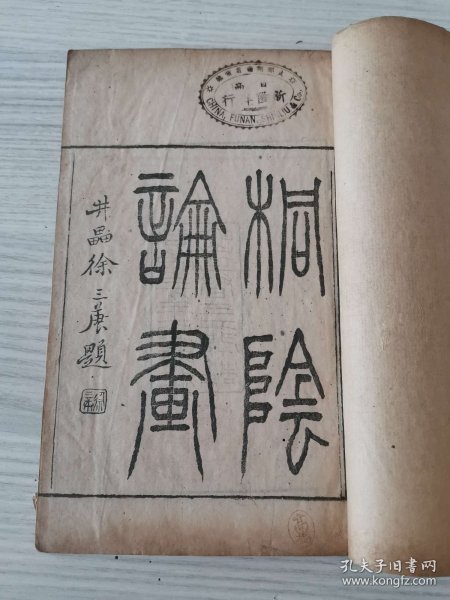 桐陰
論畫
井畾徐三庚題
CHINA, FUNAN
& Co.
孔夫子旧书网
www.kongfz.com